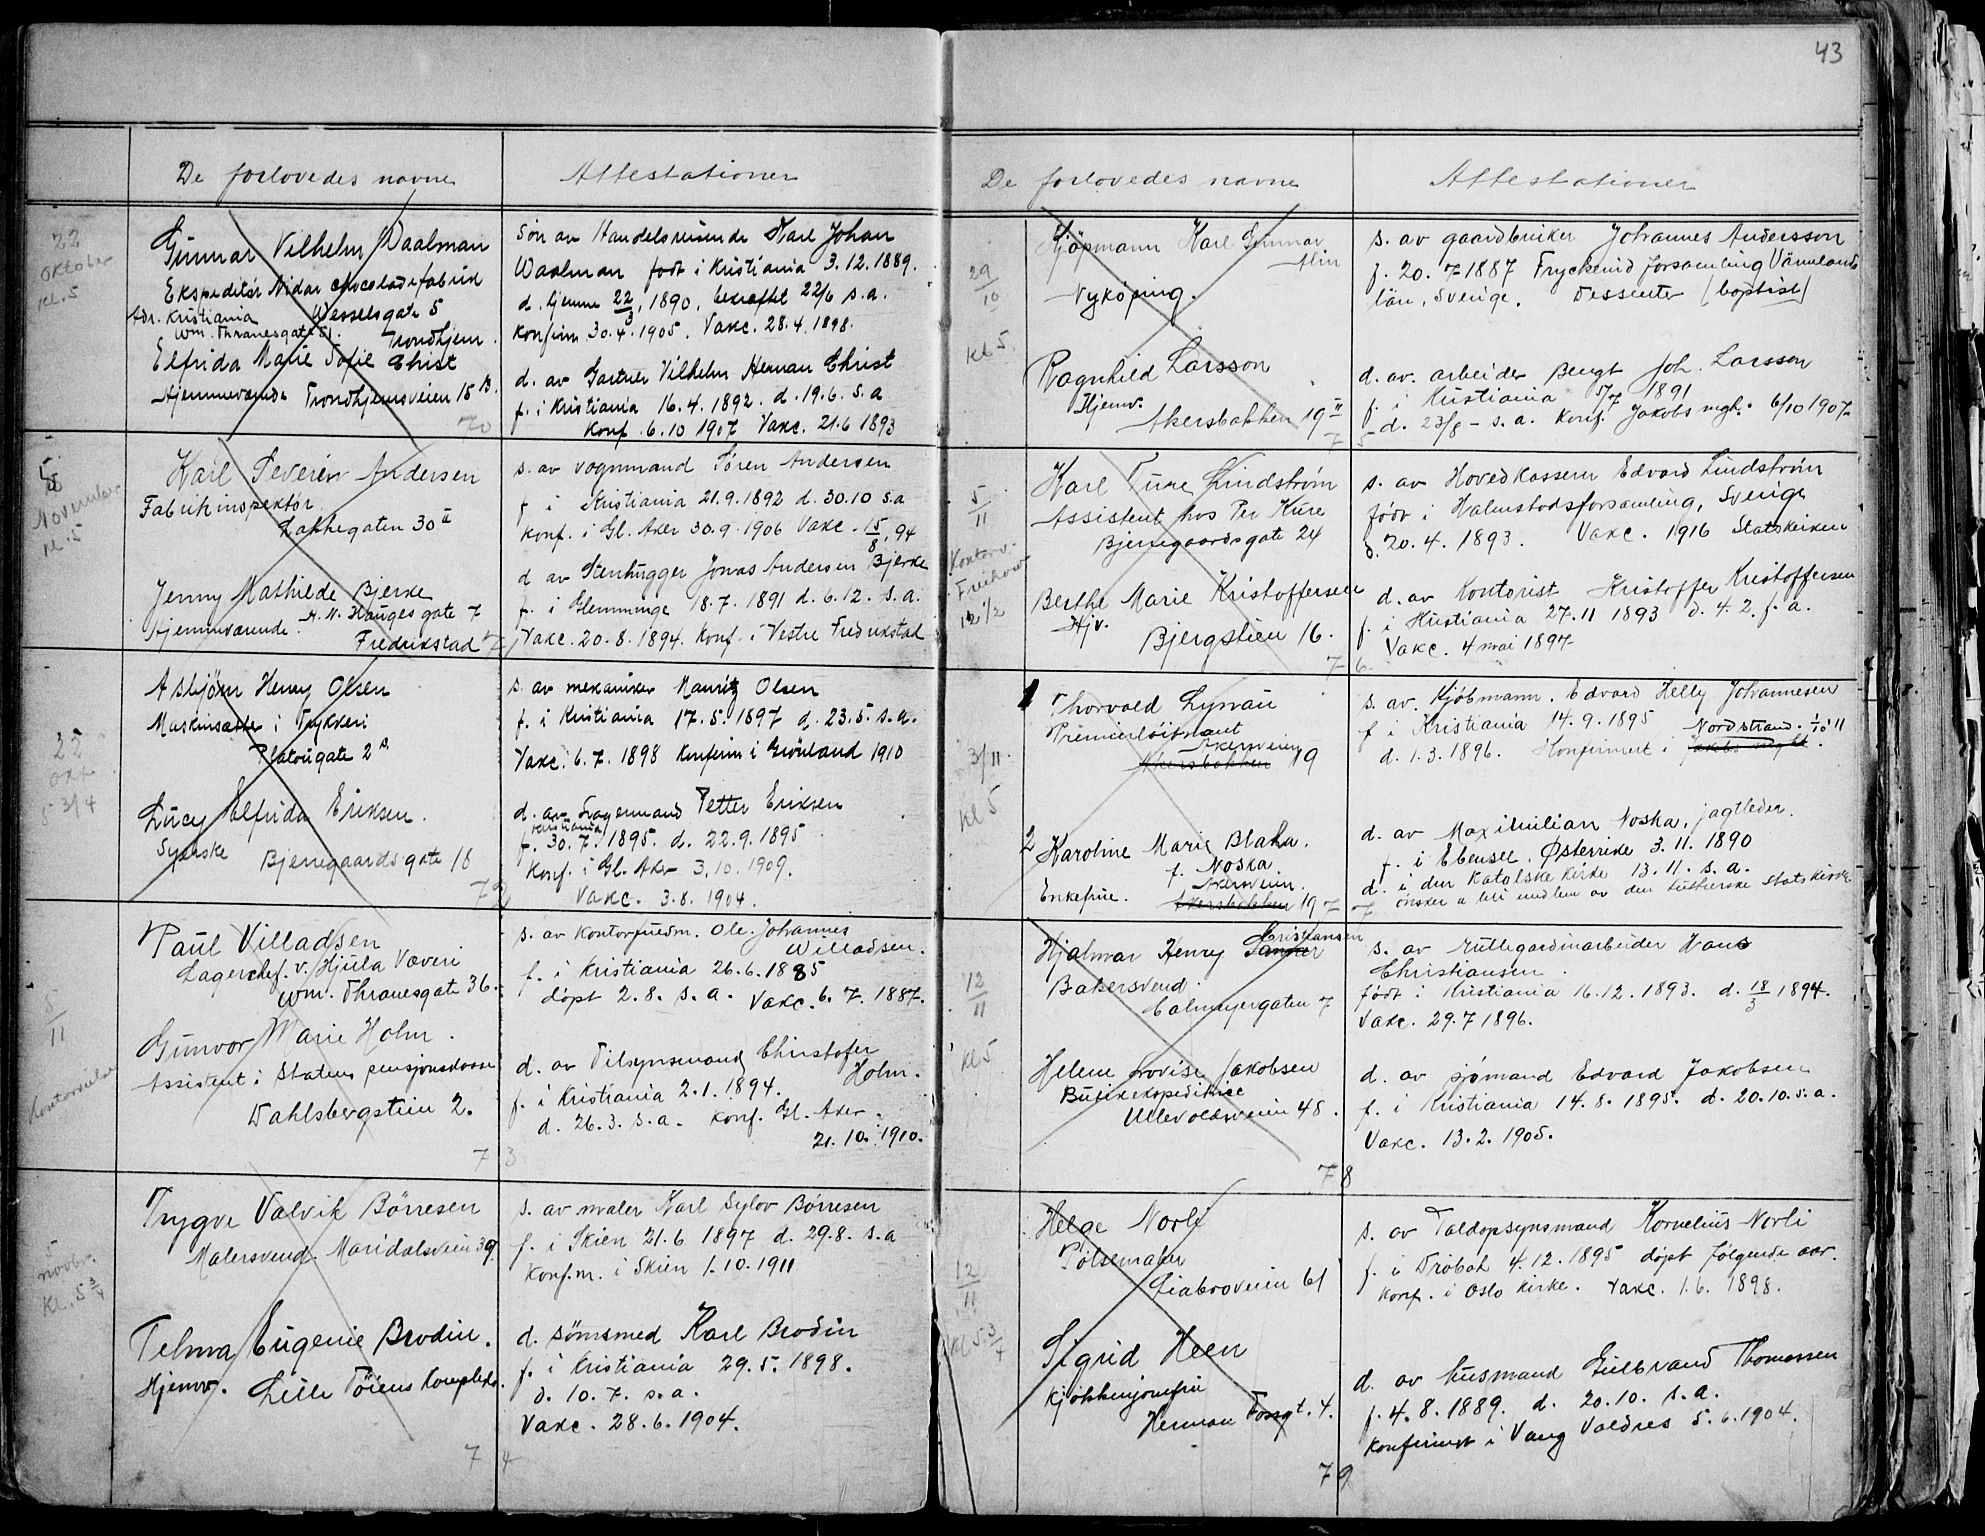 43
De forlovedes navne
Attestationer
22
oktober
kl. 5
Gunnar Vilhelm Waalman
Ekspeditör Nidar chocoladefabrik
Adr. Kristiania Wesselsgate 5
Wm. Thranesgate 51. Trondhjem.
Elfrida Marie Sofie Christ
Hjemmeværende Trondhjemsveien 15 B.
70
Søn av Handelsreisende Karl Johan
Waalman født i Kristiania 3.12.1889.
d. hjemme 22/3, 1890, bekræftet 22/6 s.a.
konfirm 30.4.1905. Vakc. 28.4.1898.
d. av Gartner Vilhelm Herman Christ
f. i Kristiania 16.4.1892. d. 19.6. s.a
Konf. 6.10 1907 Vakc. 21.6 1893
5
November
kl. 5
Karl Severin Andersen
Fabrikinspektør
Lakkegaten 30 II
Jenny Mathilde Bjerke
Hjemmeværende. H. N. Hauges gate 7
Fredrikstad
s. av vognmand Sören Andersen
f. i Kristiania 21.9.1892 d. 30.10 s.a
Konf. i Gl. Aker 30.9.1906 Vakc. 15/8, 94
d av Stenhugger Jonas Andersen Bjerke
f. i Glemminge 18.7.1891 d. 6.12. s.a.
Vakc. 20.8.1894. Konf. i Vestre Fredrikstad
22
okt.
5 3/4
Asbjörn Henry Olsen
Maskinsætter i Trykkeri
Platougate 2 B.
Lucy Elfrida Eriksen.
Syerske Bjerregaardsgate 18
72
s. av mekaniker Mauritz Olsen
f. i Kristiania 17.5.1897 d. 23.5. s.a.
Vakc. 6.7.1898 Konfirm i Grönland 1910
d. av Petter Eriksen
Kristiania
f. 30.7.1895. d. 22.9.1895
Konf. i Gl. Aker 3.10.1909.
Vakc. 3.8.1904.
5/11
Paul Villadsen
Lagerchef. v. Hjula Væveri
Wm. Thranesgate 36.
Gunvor Marie Holm.
Assistent i Statens pensjonskasse
Dahlsbergstien 2.
73
s. av Kontorfuldm. Ole Johannes
Willadsen.
f. i Kristiania 26.6.1885
døpt 2.8. s.a. Vakc. 6.7.1887.
d. av Tilsynsmand Christofer
Holm.
f. i Kristiania 2.1.1894.
d. 26.3. s.a. Konf. Gl. Aker.
21.10.1910.
5
novbr.
Kl. 5 3/4
Trygve Valvik Børresen
Malersvend. Maridalsveien 39
Telma Eugenie Brodin.
Hjemv. Lille Töiens Kompleks.
74
s. av maler Karl Sylov Börresen
f. i Skien 21.6 1897 d. 29.8. s.a
Konf.m. i Skien 1.10.1911
d. sömsmed Karl Brodin
f. i Kristiania 29.5.1898.
d. 10.7. s.a.
Vakc. 28.6.1904.
De forlovedes navne
Attestationer
29/10
kl 5.
Kjöpmann Karl Gunnar
Alin
Nyköping.
Ragnhild Larsson
Hjemv.
Akersbakken 19 II
75
s. av gaardbruker Johannes Andersson
f. 20.7.1887 Fryckerud forsamling Värmlands
län, Sverige. Dessenter (baptist)
d. av. arbeider Bengt Joh. Larsson
f. i Kristiania 5/7 1891
d. 23/8 - s.a. Konf. Jakobs mgh. 6/10 1907.
5/11
Kontorv.
12 1/2
Karl Ture Lindström
Assistent hos Per Kure
Bjerregaardsgate 24
Berthe Marie Kristoffersen
Hjv.
Bjergstien 16.
76
s. av Hovedkasserer Edvard Lindström
født i Halmstadsforsamling, Sverige
d. 20.4.1893. Vakc. 1916 Statskirken
d. av Kontorist Kristoffer Kristoffersen
f. i Kristiania 27.11 1893 d. 4.2. f.a.
Vakc. 4 mai 1894
3/11.
kl 5
1 Thorvald Lysvan
Premierlöitnant
Akersveien
Akersbakken 19
2 Karoline Marie Blaha.
f. Noska
Akersveien.
Enkefrue. Akersbakken 19
77
s. av. Kjöbmann. Edvard Helly Johannesen
f i Kristiania 14.9.1895 Nordstrand. 1/10 11
d. 1.3.1896. Konfirmert i Jakobs mght.
d. av Maximilian Noska, jagtleder.
f. i Ebensee. Østerrike 3.11.1890
d. i den Katolske Kirke 13.11. s.a.
ønsker a bli medlem av den lutherske Statskirke
12/11
kl 5
Christiansen
Hjalmar Henry
Bakersvend.
Calmeyergaten 7
Helene Lovise Jakobsen
Butikekspeditrice
Ullevoldsveien 48.
78
s. av Rullegardinarbeider Hans
Christiansen.
født i Kristiania 16.12.1893. d. 18/3 1894.
Vakc. 29.7 1896.
d. av sjømand Edvard Jakobsen
f. i Kristiania 14.8.1895. d. 20.10. s.a.
Vakc. 13.2.1905.
12/11
kl 5 3/4
Helge Norli
Pölsemaker
Liabroveien 61
Sigrid Heen
kjökkenjomfru
Herman Fossgt. 4.
79
s. av Toldopsynsmand Kornelius Norli
f. i Dröbak 4.12.1895 døpt følgende aar.
Konf. i Oslo Kirke. Vakc. 1.6.1898.
d. av husmand Gulbrand Thomassen
f. 4.8.1889. d. 20.10. s.a.
Konfirmert i Vang Valdres 5.6.1904.